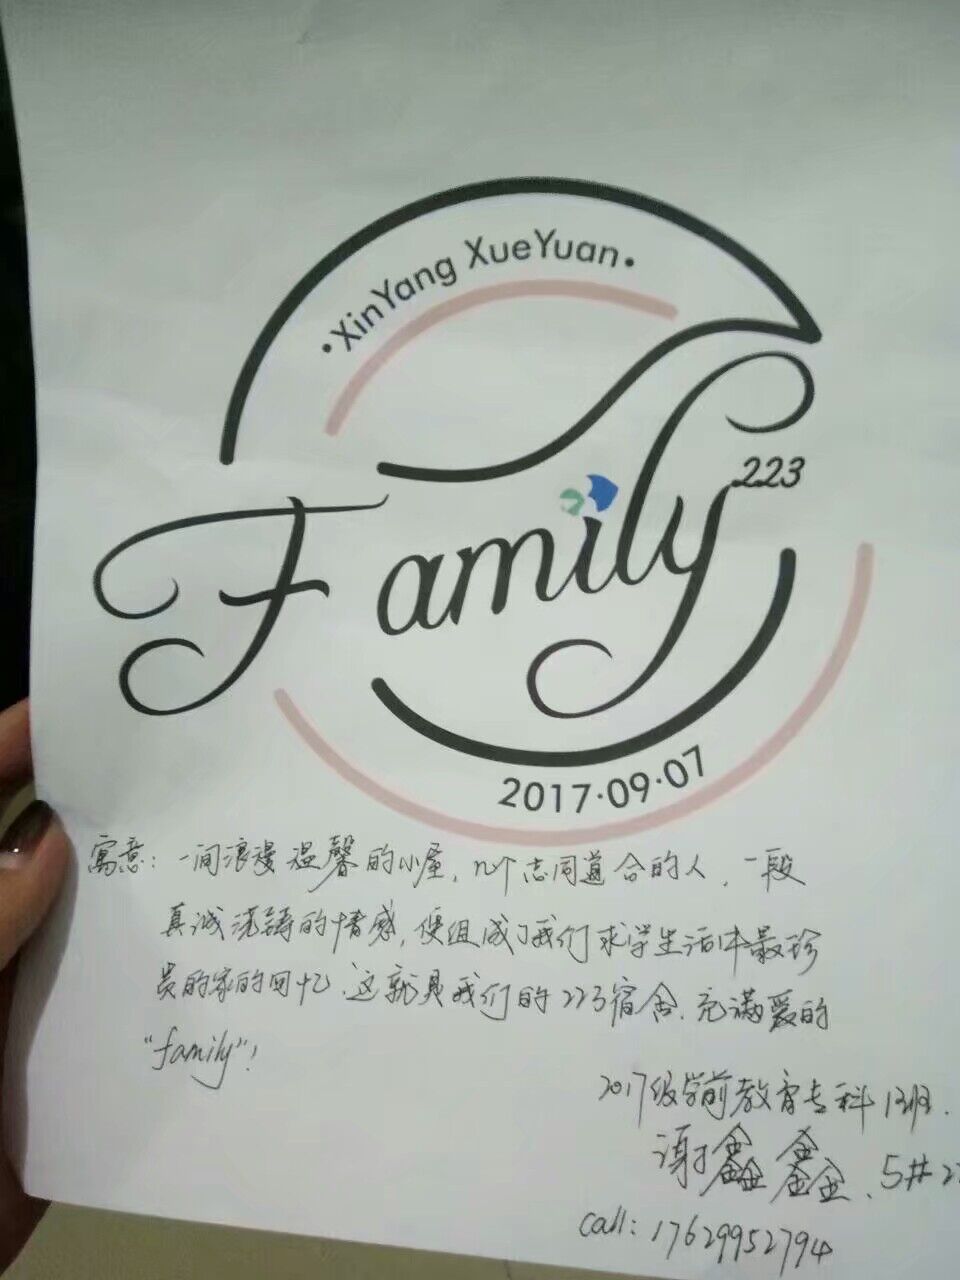 ·XinYang XueYuan·
Family 223
2017·09·07
寓意：一间浪漫温馨的小屋，几个志同道合的人，一段
真诚浇铸的情感，便组成了我们求学生活中最珍
贵的家的回忆．这就是我们的223宿舍．充满爱的
“family”！
2017级学前教育专科13班．
谢鑫鑫．5#
call：17629952794